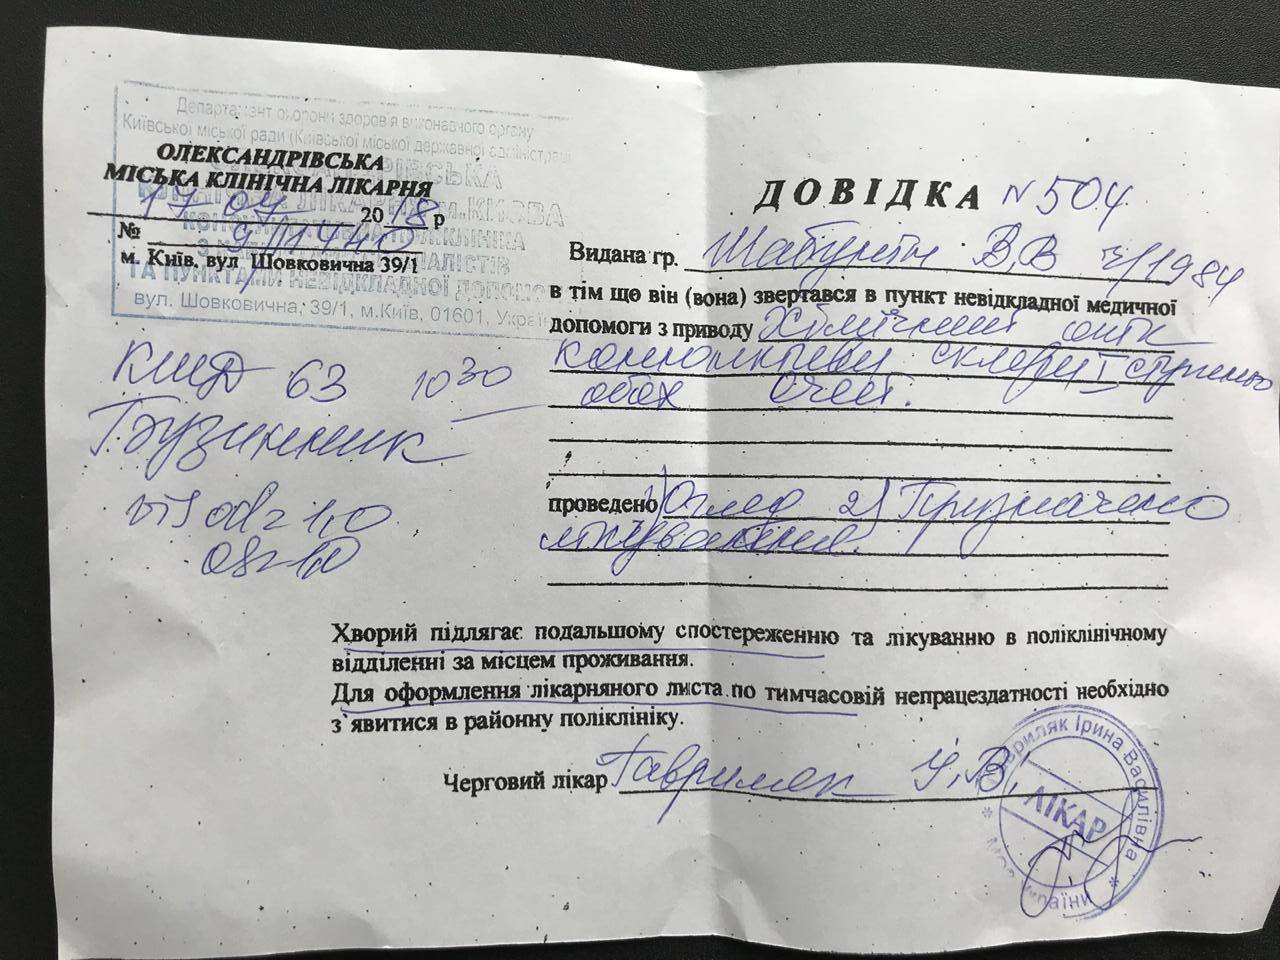 Департамент охорони здоров'я виконавчого органу
Київської міської ради (Київської міської державної адміністрації
ОЛЕКСАНДРІВСЬКА
МІСЬКА КЛІНІЧНА ЛІКАРНЯ
17 07 2018р
№
м. Київ, вул Шовковична 39/1
ОЛЕКСАНДРІВСЬКА
КЛІНІЧНА ЛІКАРНЯ м.КИЄВА
ТА ПУНКТАМИ НЕВІДКЛАДНОЇ ДОПОМО
вул. Шовковична, 39/1, м.Київ, 01601, Україн
63 10 30
Бузинник
vis od = 1,0
os = 1,0
ДОВІДКА N 504
Видана гр. Шабунін В,В 1984
в тім що він (вона) звертався в пункт невідкладної медичної
допомоги з приводу Хімічний опік
конюнктиви склери I ступеню
обох очей.
проведено 1) Огляд 2) Призначено
лікування.
Хворий підлягає подальшому спостереженню та лікуванню в поліклінічному
відділенні за місцем проживання.
Для оформлення лікарняного листа по тимчасовій непрацездатності необхідно
з`явитися в районну поліклініку.
Черговий лікар Гавриляк І.В.
Гавриляк Ірина Василівна
ЛІКАР
* МОЗ України *